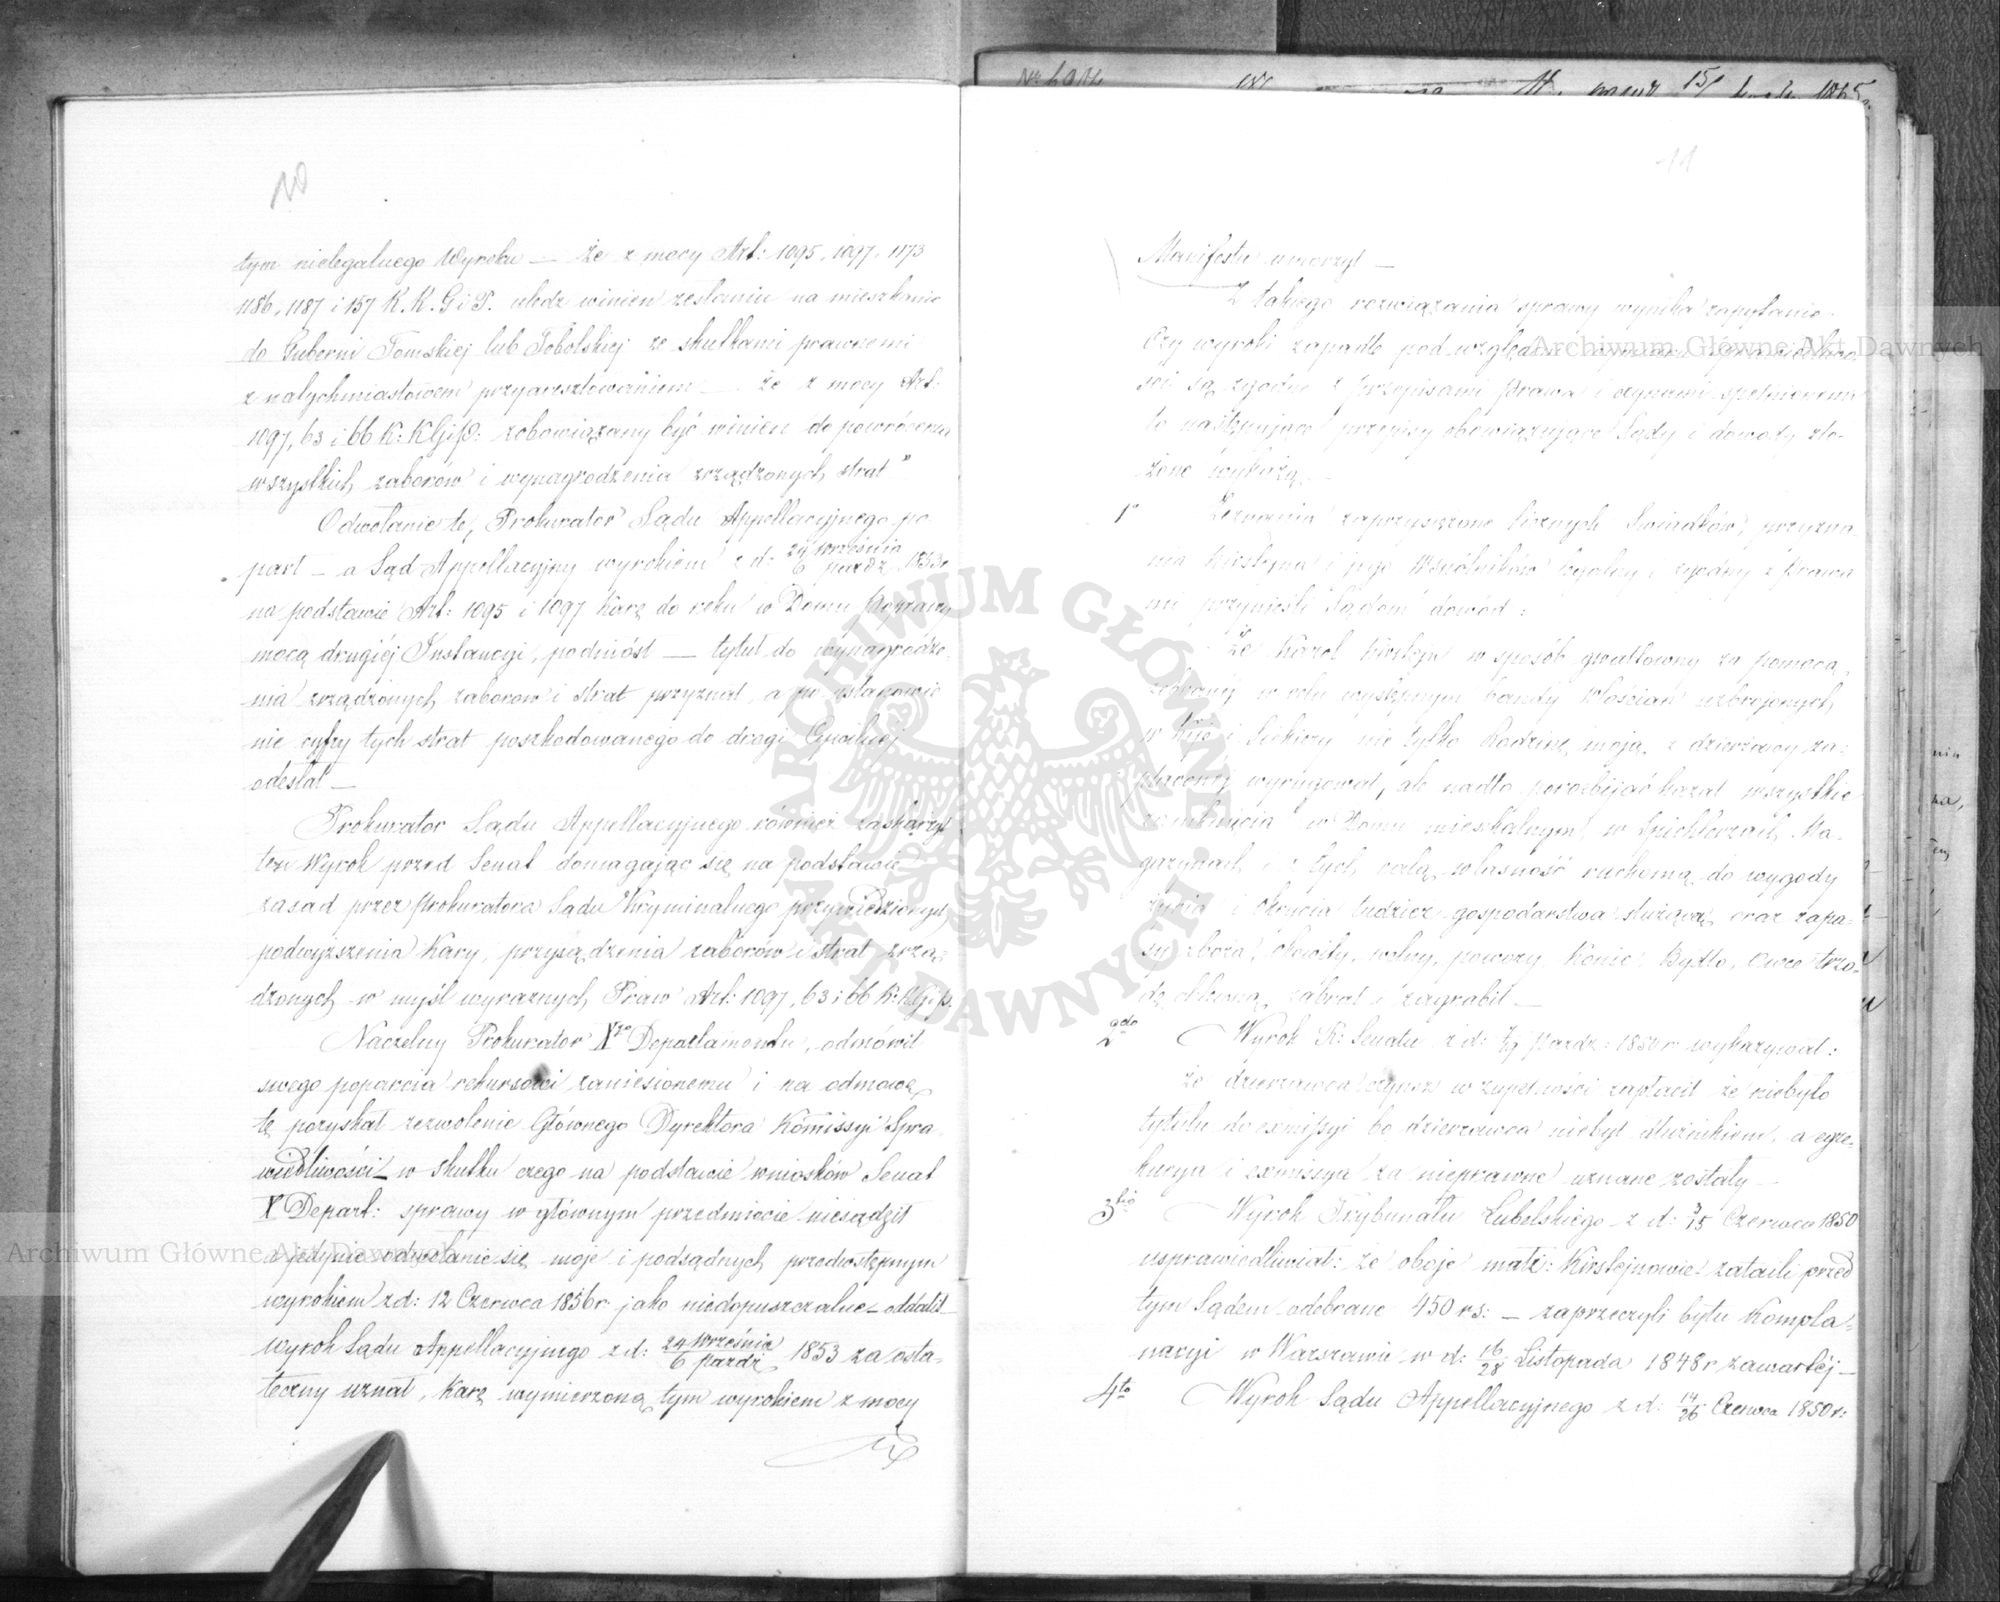 10
tym nielegalnego Wyroku — że z mocy Art: 1095, 1097, 1173
1186, 1187 i 157 K.K.G i P. uledz winien zesłaniu na mieszkanie
do Guberni Tomskiej lub Tobolskiej ze skutkami prawnemi
z natychmiastowem przyaresztowaniem — że z mocy Art:
1097, 63 i 66 K: K G i P: zobowiązany być winien do powrócenia
wszystkich zaborów i wynagrodzenia zrządzonych strat"
Odwołanie te, Prokurator Sądu Appellacyjnego po
parł — a Sąd Appellacyjny wyrokiem z d: 24 Września / 6 Paźdz 1853r
na podstawie Art: 1095 i 1097 Karę do roku w Domu Poprawy
mocą drugiéj Instancyi, podniósł — tytuł do wynagrodze-
nia zrządzonych zaborów i strat przyznał, a po ustanowie
nie cyfry tych strat poszkodowanego do drogi Cywilnej
odesłał —
Prokurator Sądu Appellacyjnego również zaskarżył
ten Wyrok przed Senat domagając się na podstawie
zasad przez Prokuratora Sądu Kryminalnego przywiedzionych
podwyższenia Kary, przysądzenia zaborów i strat zrzą-
dzonych w myśl wyraźnych Praw Art: 1097, 63 i 66 K: K G i P.
Naczelny Prokurator Xgo Departamentu, odmówił
swego poparcia rekursowi zaniesionemu i na odmowę
tę pozyskał zezwolenie Głównego Dyrektora Komissyi Spra-
wiedliwości — w skutku czego na podstawie wniosków Senat
X Depart: sprawy w głównym przedmiocie niesądził
a jedynie odwołanie się moje i podsądnych przedwstępnym
wyrokiem z d: 12 Czerwca 1856 r: jako niedopuszczalne — oddalił
wyrok Sądu Appellacyjnego z d: 24 Września / 6 Paźdź 1853 za osta-
teczny uznał, Karę wymierzoną tym wyrokiem z mocy
11
Manifestu umorzył —
Z takiego rozwiązania sprawy wynika zapytanie
Czy wyroki zapadłe pod względem
ści są zgodne z przepisami Prawa i czynami spełnionemi
to następujące przepisy obowiązujące Sądy i dowody zło-
żone wykażą —
1o Zeznania zaprzysiężone licznych Świadków, przyzna
nia Kirstejna i jego Wspólników legalny i zgodny z Prawa
mi przynieśli Sądom dowód:
Że Karol Kirstejn w sposób gwałtowny za pomocą
zebranéj w celu występnym bandy Włościan uzbrojonych
w Kije i Siekiery nie tylko Rodzinę moją z dzierżawy za-
płaconéj wyrugował, ale nadto porozbijać kazał wszystkie
zamknięcia w Domu mieszkalnym, w Spichlerzach, Ma-
gazynach i z tych całą własność ruchomą do wygody
życia i okrycia tudzież gospodarstwa służącą oraz zapa-
sy zboża, Okowity, wełny, powozy Konie, Bydło, Owce trzo-
dę chlewną zabrał i zagrabił —
2do Wyrok R: Senatu z d: Paźdz: 1850 r: wykazywał:
że dzierżawca czynsz w zupełności zapłacił że niebyło
tytułu do exmissyi bo dzierżawca niebył dłużnikiem, a egze-
kucya i exmissya za nieprawne uznane zostały —
3tio Wyrok Trybunału Lubelskiego z d: 3/15 Czerwca 1850
usprawiedliwiał: że oboje małż: Kirstejnowie zataili przed
tym Sądem odebrane 450 rs: — zaprzeczyli bytu Kompla-
nacyi w Warszawie w d: 16/28 Listopada 1848 r zawartéj —
4to Wyrok Sądu Appellacyjnego z d: 14/26 Czerwca 1850 r:
Archiwum Główne Akt Dawnych
Archiwum Główne Akt Dawnych
ARCHIWUM GŁÓWNE
AKT DAWNYCH